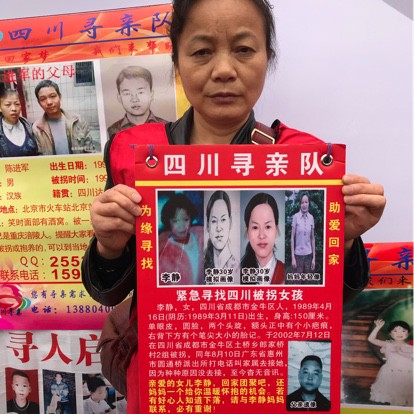 四川寻亲队
单的父母
陈进军
出生日期：199
男
被拐时间：199
汉族
籍贯：四川达
地点：北京市火车站北京
QQ：255
联系电话：159
您有寻亲需求
电话：1388040
寻人店
四川寻亲队
为缘寻找
助爱回家
李静
李静30岁
模拟画像
李静30岁
模拟画像
妈妈年轻像
紧急寻找四川被拐女孩
李静，女，四川省成都市金牛区人，1989年4月
16日(阴历：1989年3月11日)出生，身高：150厘米，
单眼皮，圆脸，两个头旋，额头正中有个小疤痕，
右背下方有个笔头大小的胎记。于2002年7月12日
在四川省成都市金牛区土桥乡郎家桥
村2组被拐，同年8月10日广东省惠州
市圆通桥派出所打电话叫家属去接她，
因为种种原因没去接，至今杳无音讯。
亲爱的女儿李静，回家团聚吧，还
妈妈一个给你温暖怀抱的机会，若
有好心人知道下落，请与李静妈妈
联系，必有重谢！
父亲遗像